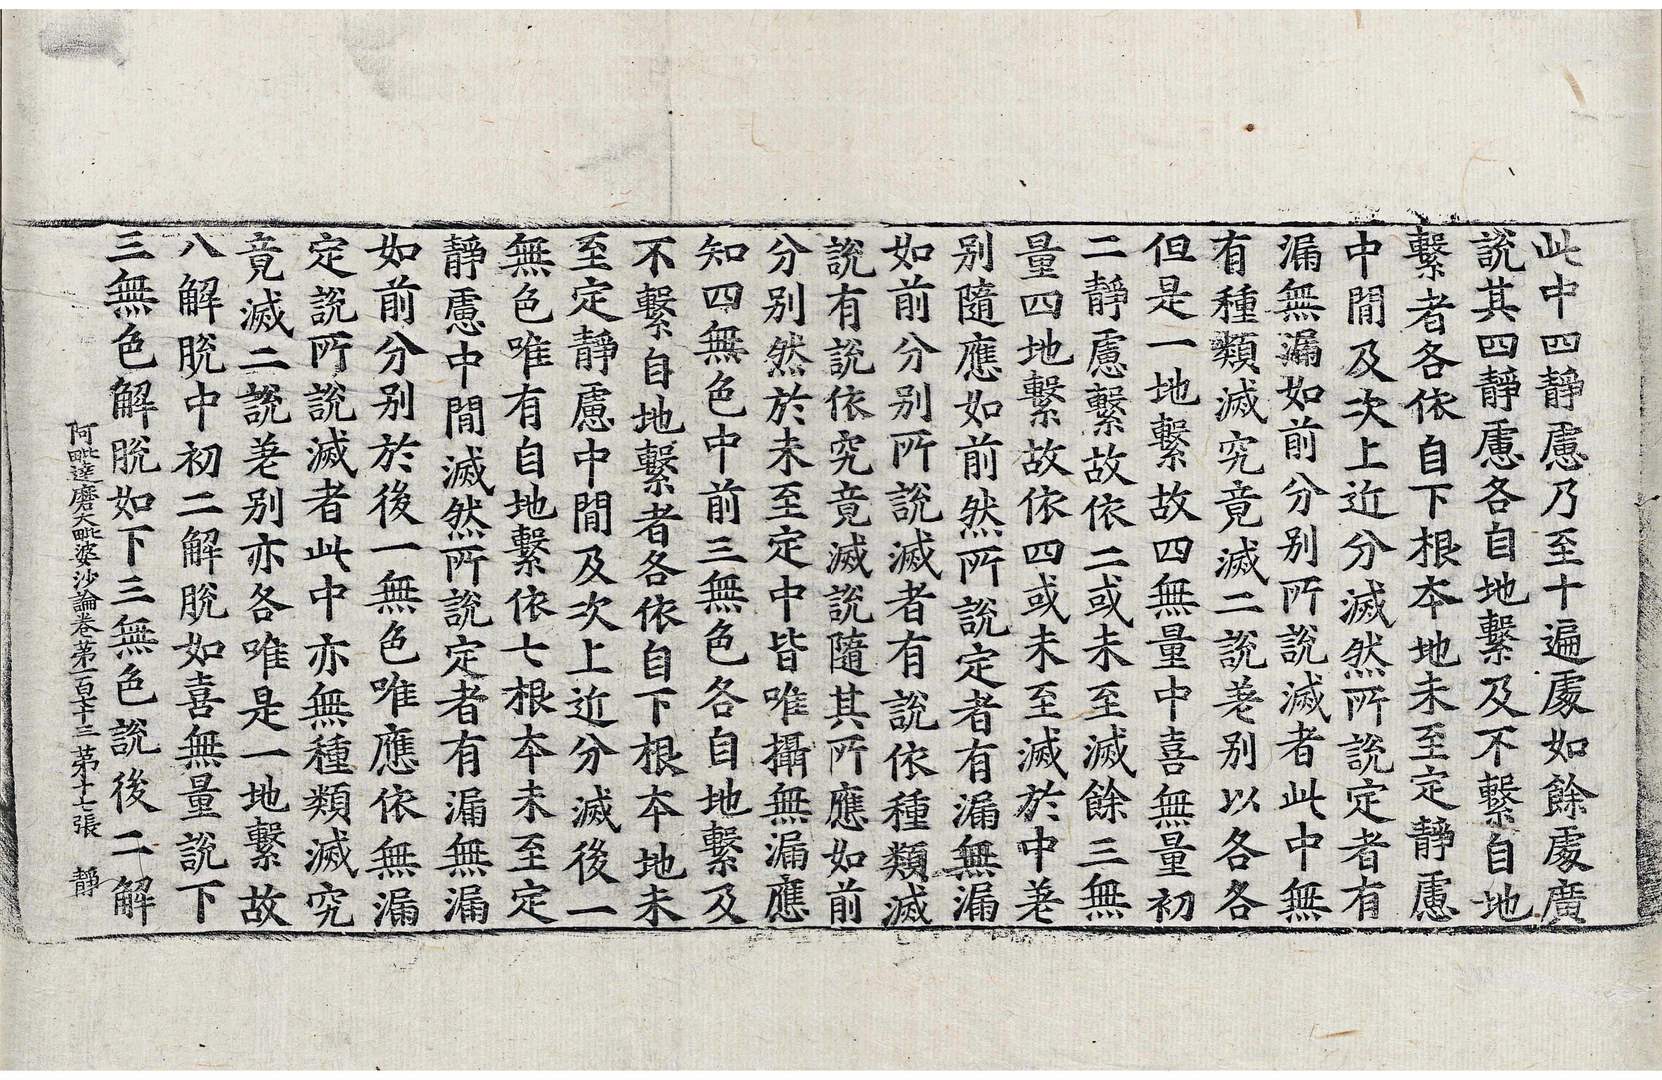 此中四靜慮乃至十遍處如餘處廣
說其四靜慮各自地繫及不繫自地
繫者各依自下根本地未至定靜慮
中間及次上近分滅然所說定者有
漏無漏如前分別所說滅者此中無
有種類滅究竟滅二說差別以各各
但是一地繫故四無量中喜無量初
二靜慮繫故依二或未至滅餘三無
量四地繫故依四或未至滅於中差
別隨應如前然所說定者有漏無漏
如前分別所說滅者有說依種類滅
說有說依究竟滅說隨其所應如前
分別然於未至定中皆唯攝無漏應
知四無色中前三無色各自地繫及
不繫自地繫者各依自下根本地未
至定靜慮中間及次上近分滅後一
無色唯有自地繫依七根本未至定
靜慮中間滅然所說定者有漏無漏
如前分別於後一無色唯應依無漏
定說所說滅者此中亦無種類滅究
竟滅二說差別亦各唯是一地繫故
八解脫中初二解脫如喜無量說下
三無色解脫如下三無色說後二解
阿毗達磨大毗婆沙論卷第一百七十三 第十七張 靜